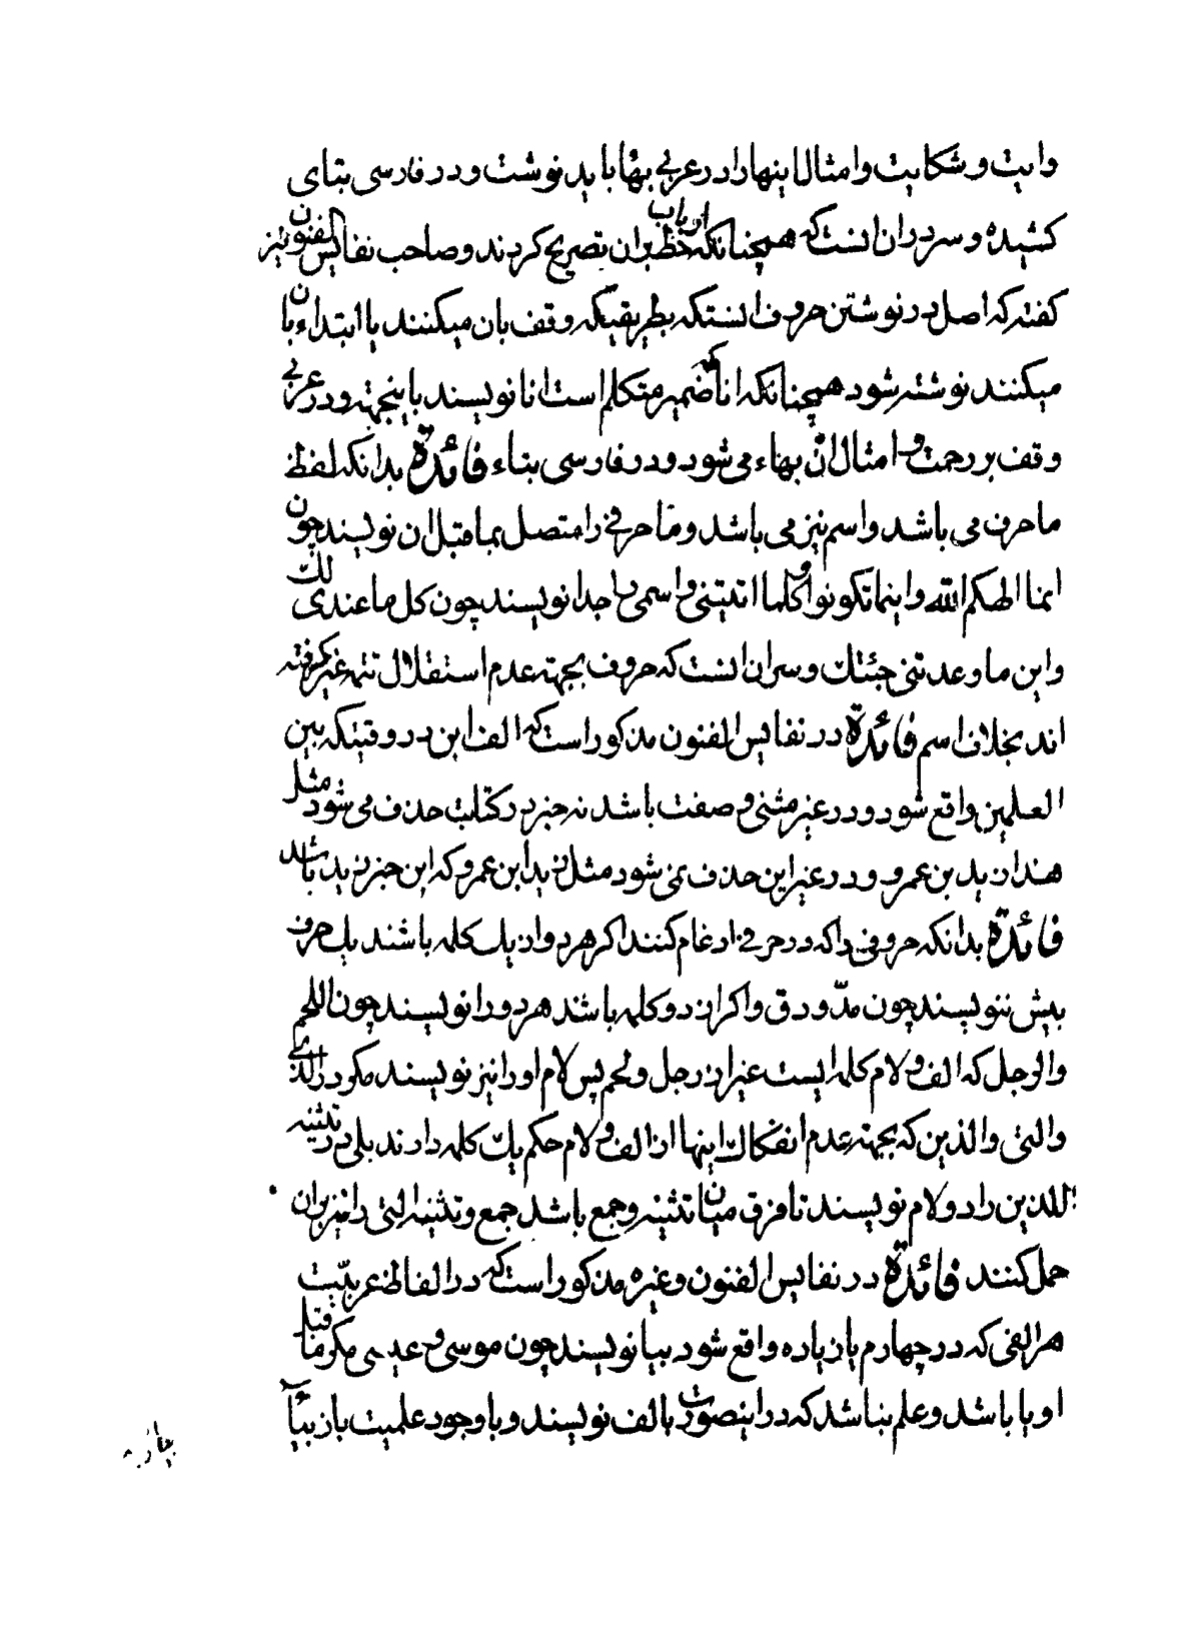 وایت و شکایت و امثال اینها را در عربی بها باید نوشت و در فارسی بتای
کشیده و سر در ان انست که همچنانکه ارباب خط بران تصریح کردند و صاحب نفایس الفنون نیز
کفته که اصل در نوشتن حروف انستکه بطریقیکه وقف بان میکنند یا ابتداء بان
میکنند نوشته شود همچنانکه انا که ضمیر متکلم است انا نویسند باینجهته و در عربی
وقف بر رحمت و امثال ان بهاء می شود و در فارسی بتاء فائدة بدانکه لفظ
ما حرف می باشد و اسم نیز می باشد و ما حرفی را متصل بما قبل ان نویسند چون
انما الهکم الله و اینما تکونوا و کلما اتیتنی و اسمی را جدا نویسند چون کل ما عندی لک
و این ما وعدتنی جئتک و سر ان انست که حروف بجهته عدم استقلال تتمه غیر کرفته
اند بخلاف اسم فائدة در نفایس الفنون مذکور است که الف ابن در وقتیکه بین
العلمین واقع شود و در غیر مثنی و صفت باشد نه خبر در کتابت حذف می شود مثل
هذا زید بن عمرو و در غیر این حذف نمی شود مثل زید ابن عمرو که ابن خبر زید باشد
فائدة بدانکه حروفی را که در حرفی ادغام کنند اکر هر دو از یک کلمه باشند یک حرف
بیش ننویسند چون مدّ و دق و اکر از دو کلمه باشد هر دو را نویسند چون اللحم
و الرجل که الف و لام کلمه ایست غیر از رجل و لحم پس لام او را نیز نویسند مکر در الذی
و التی و الذین که بجهته عدم انفکاک اینها از الف و لام حکم یک کلمه دارند بلی در تثنیه
اللذین را دو لام نویسند تا فرق میان تثنیه و جمع باشد جمع و تثنیه التی را نیز بران
حمل کنند فائدة در نفایس الفنون و غیره مذکور است که در الفاظ عربیّت
هر الفی که در چهارم یا زیاده واقع شود بیا نویسند چون موسی و عیسی مکر ما قبل
او یا باشد و علم نباشد که در اینصورت بالف نویسند و با وجود علمیت باز بیاء